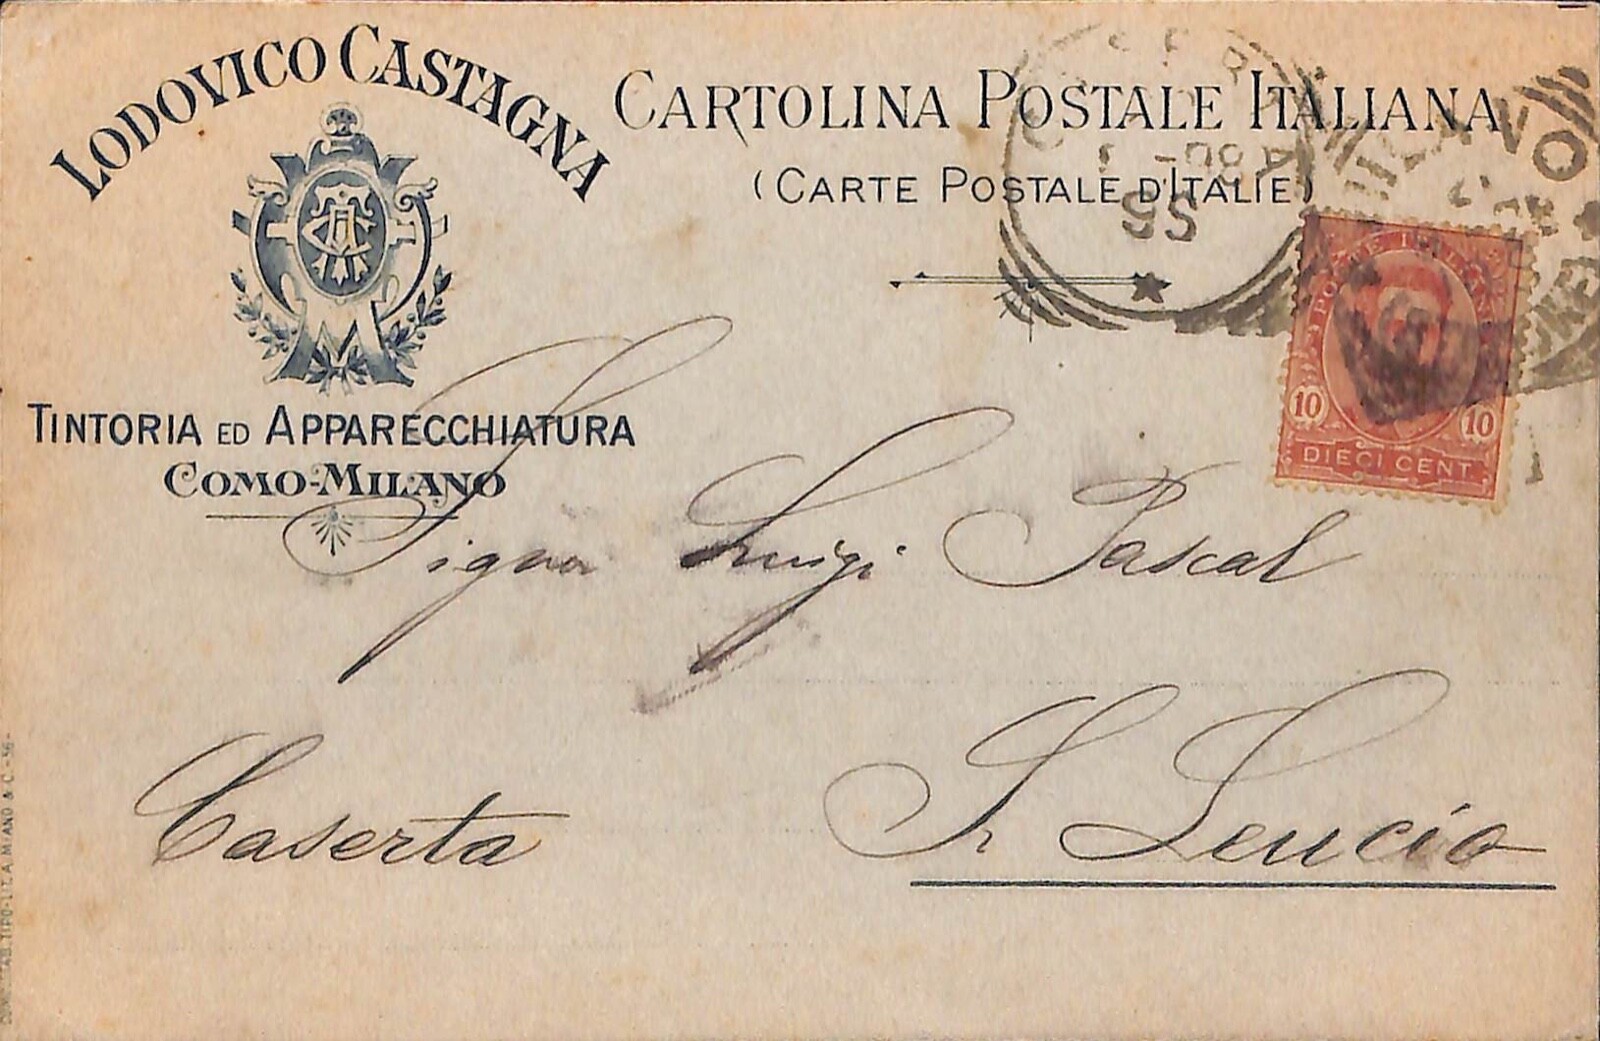 LODOVICO CASTAGNA
TINTORIA ED APPARECCHIATURA
COMO-MILANO
CARTOLINA POSTALE ITALIANA
(CARTE POSTALE D'ITALIE)
POSTE ITALIANE
10 10
DIECI CENT
Signor Luigi Pascal
S. Leucio
Caserta
TIPO-LIT. A. MIANO & C. -56-